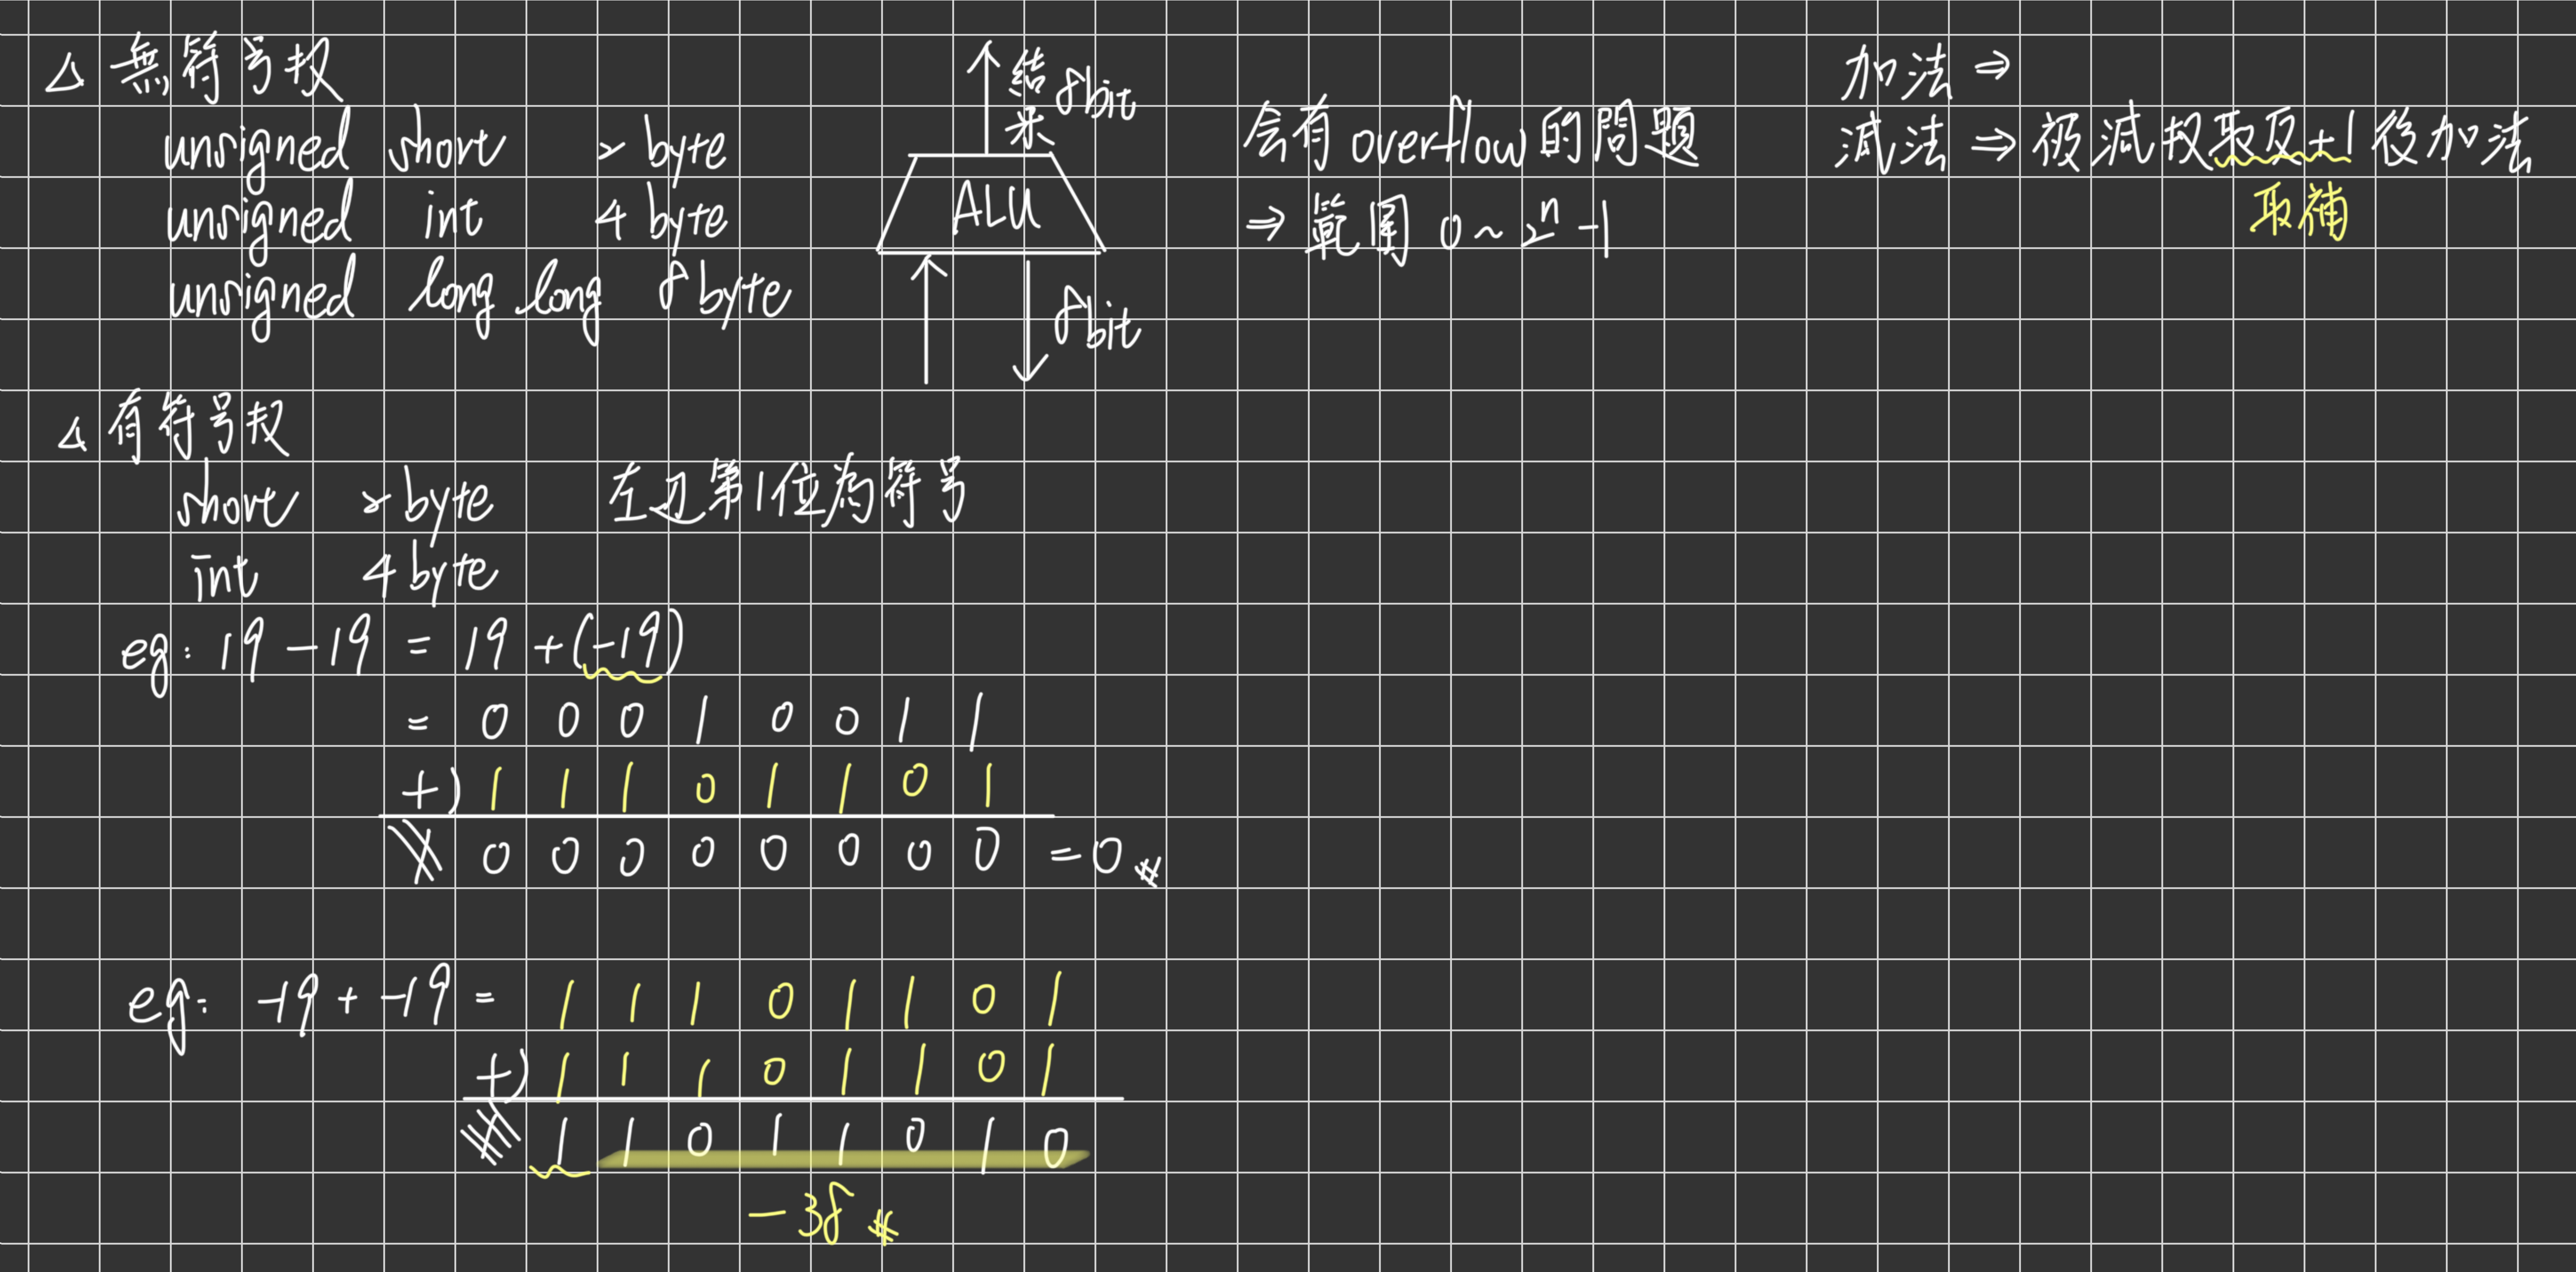 △ 無符号权
unsigned short 2 byte
unsigned int 4 byte
unsigned long long 8 byte
結果 8bit
ALU
8bit
会有 overflow 的問題
⇒ 範圍 0 ~ 2ⁿ -1
加法 ⇒
減法 ⇒ 被減权取反+1後加法
取補
△ 有符号权
short 2 byte 左边第1位為符号
int 4 byte
eg: 19 - 19 = 19 + (-19)
= 0 0 0 1 0 0 1 1
+) 1 1 1 0 1 1 0 1
0 0 0 0 0 0 0 0 = 0
eg: -19 + -19 = 1 1 1 0 1 1 0 1
+) 1 1 1 0 1 1 0 1
1 1 0 1 1 0 1 0
-38